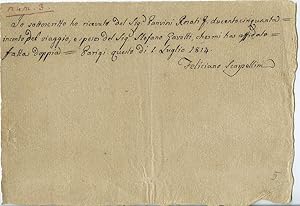 num. 3
Io sottoscritto ho ricevuto dal Sigr Panvini Rosati ff. duecento cinquanta =
in conto del viaggio, e spese del Sigr Stefano Pavolli, che mi ha affidato =
falla doppia = Parigi questo di 1 Luglio 1814
Feliciano Scarpellini